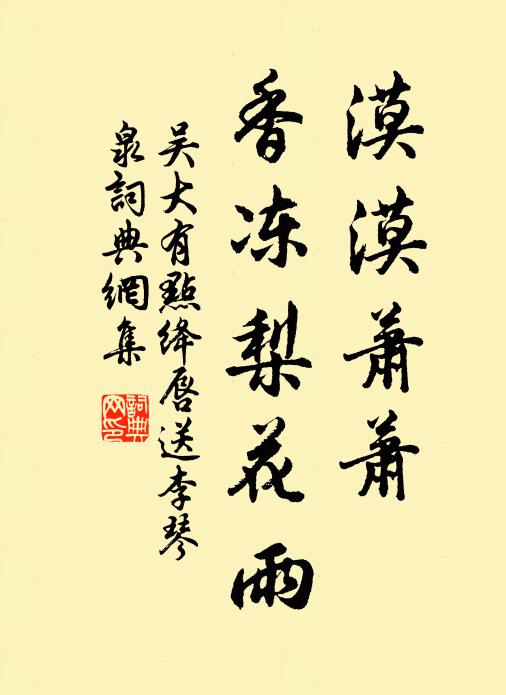 漠漠萧萧
香冻梨花雨
吴大有點绛唇送李琴
泉詞典網集
詞典网印